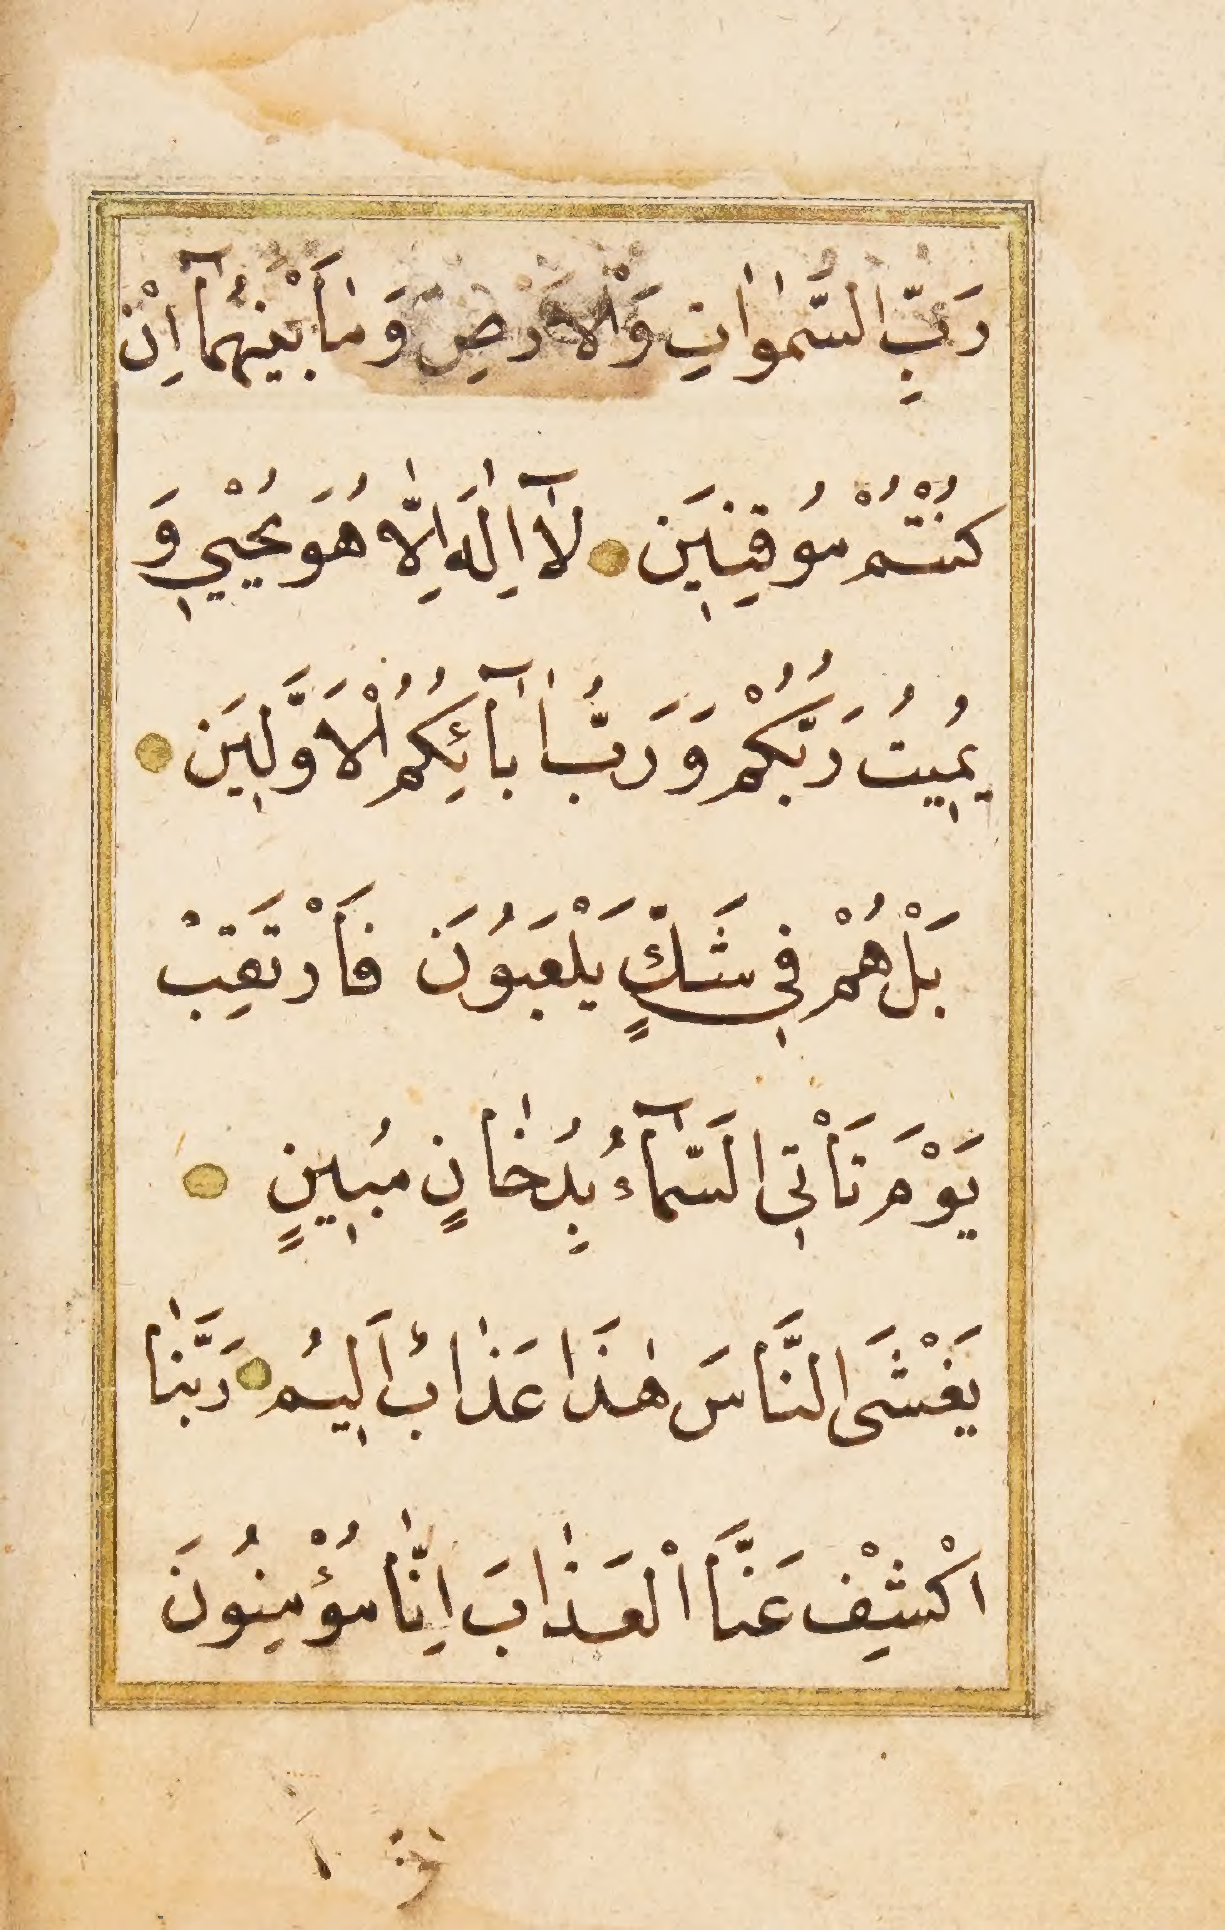 رَبِّ السَّمٰوٰاتِ وَالْاَرْضِ وَمٰا بَيْنَهُمٰآ اِنْ
كُنْتُمْ مُوقِنٖينَ لٰآ اِلٰهَ اِلّٰا هُوَ يُحْيٖي وَ
يُمٖيتُ رَبُّكُمْ وَرَبُّ اٰبٰآئِكُمُ الْاَوَّلٖينَ
بَلْ هُمْ فٖي شَكٍّ يَلْعَبُونَ فَارْتَقِبْ
يَوْمَ تَأْتِى السَّمٰآءُ بِدُخٰانٍ مُبٖينٍ
يَغْشَى النَّاسَ هٰذَا عَذٰابٌ اَلٖيمٌ رَبَّنٰا
اكْشِفْ عَنَّا الْعَذٰابَ اِنّٰا مُؤْمِنُونَ